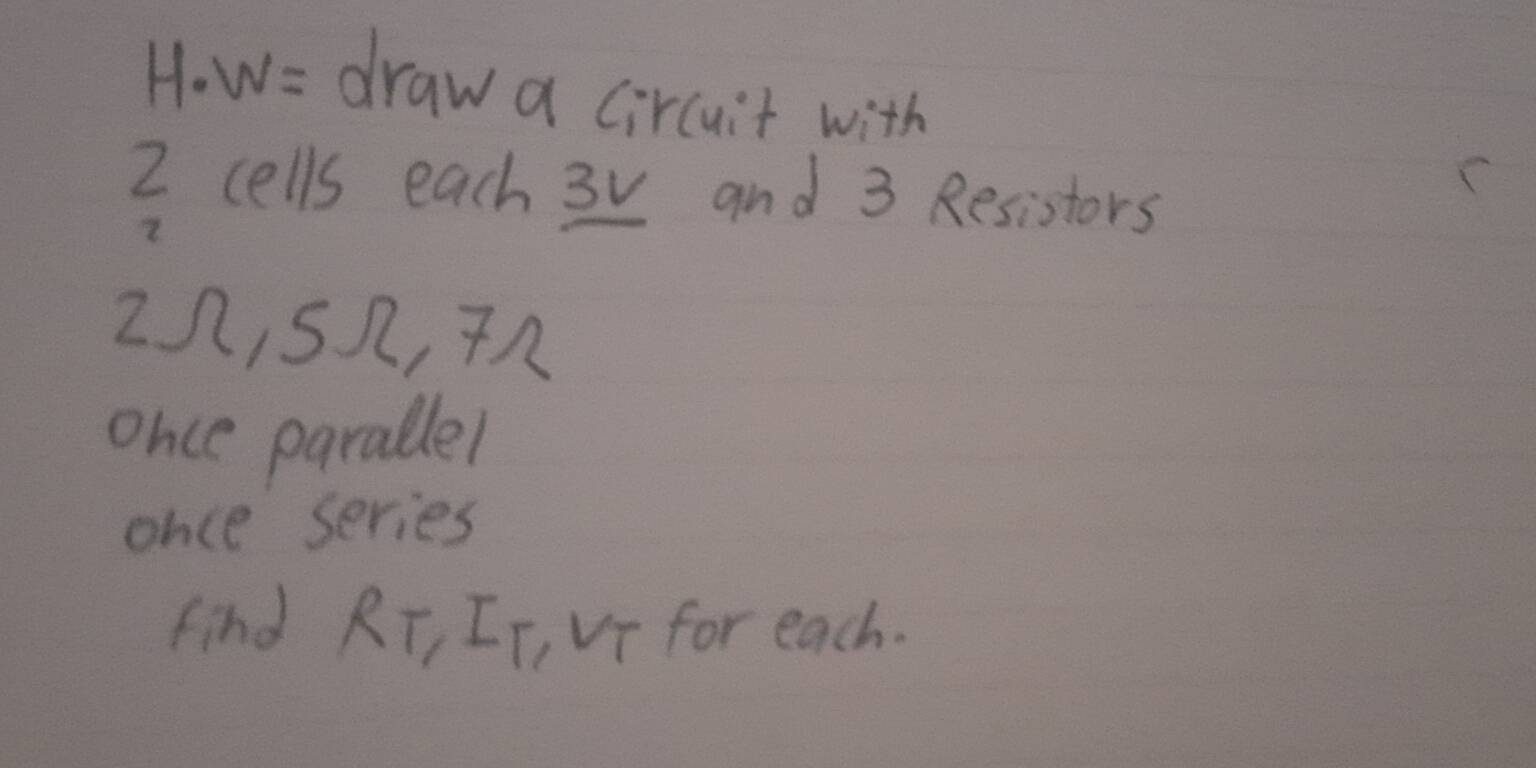 H.W= draw a circuit with
2 cells each 3V and 3 Resistors
2
2Ω, 5Ω, 7Ω
once parallel
once series
find RT, IT, VT for each.